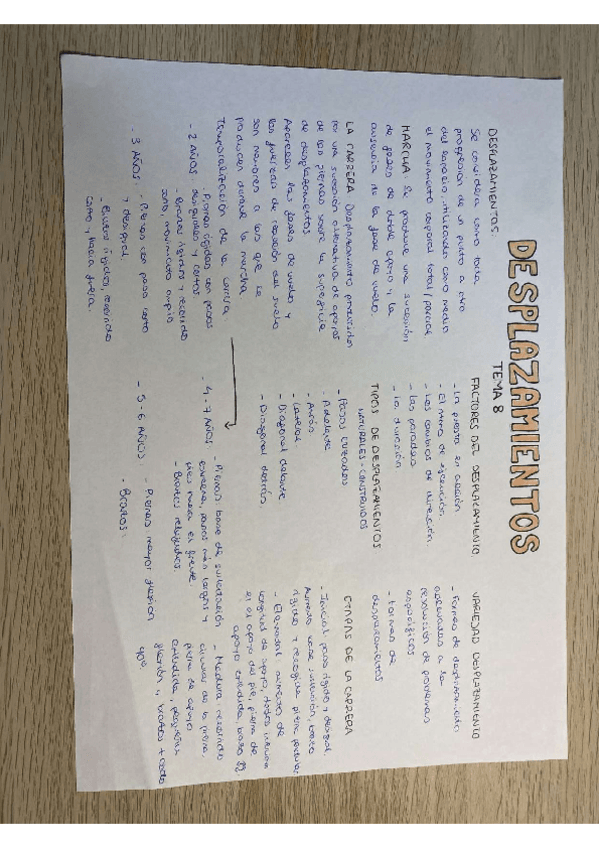 DESPLAZAMIENTOS
TEMA 8
DESPLAZAMIENTOS:
Se considera como toda
progresión de un punto a otro
del espacio, utilizando como medio
el movimiento corporal total/parcial
MARCHA Se produce una sucesión
de fases de doble apoyo y la
ausencia de la fase de vuelo.
LA CARRERA Desplazamiento producidos
por una sucesión alternativa de apoyos
de las piernas sobre la superficie
de desplazamientos
Aparecen las fases de vuelo y
las fuerzas de reacción del suelo
son menores a las que se
producen durante la marcha
Temporalización de la carrera
- 2 AÑOS: · Piernas rígidas con pasos
desiguales y cortos
- Brazos rígidos y recorrido
movimiento amplio
- 3 AÑOS: - Piernas con paso corto
y desigual.
- Brazos rígidos, recorrido
corto y hacia fuera.
FACTORES DEL DESPLAZAMIENTO
- La puesta en acción
- El ritmo de ejecución.
- Los cambios de dirección.
- Las paradas
- La dirección
TIPOS DE DESPLAZAMIENTOS
NATURALES - CONSTRUIDOS
- Pasos cruzados
- Adelante
- Atrás
- Lateral
- Diagonal delante
- Diagonal detrás
- 4-7 AÑOS: - Piernas base de sustentación
estrecha, pasos más largos y
pies hacia el frente
- Brazos relajados.
- 5-6 AÑOS - Piernas mayor flexión
- Brazos: 90º
VARIEDAD DESPLAZAMIENTO
- Formas de desplazamiento
adecuadas a la
resolución de problemas
específicos
- Formas de
desplazamientos
ETAPAS DE LA CARRERA
- Inicial: paso rígido y desigual
Aumento base sustentación, brazo
rígido y recogida pierna
- Elemental: aumento de
longitud de apoyo,
el apoyo del pie, pierna de
apoyo extendida, base
- Madura: recorrido
circular de la pierna,
pierna de apoyo
extendida, pequeña
flexión y brazos + codo